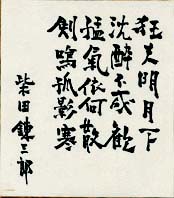 狂夫明月下
沈醉不成歓
猛氣依何散
剣鳴孤影寒
柴田錬三郎